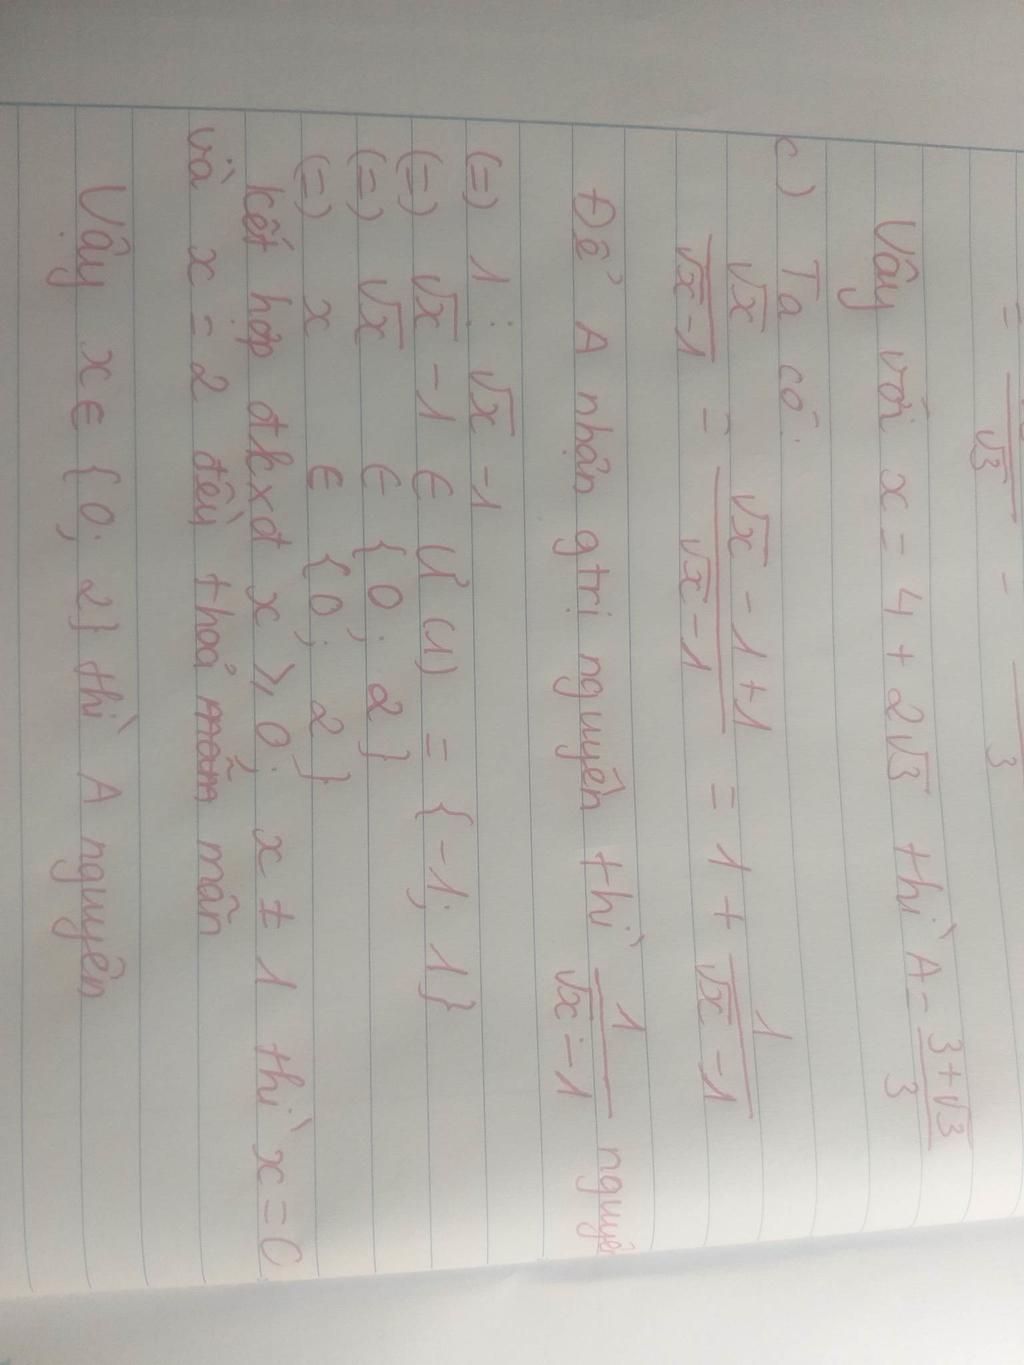 = √3 - 3
Vậy với x = 4 + 2√3 thì A = (3+√3)/3
c) Ta có:
√x/(√x-1) = (√x - 1 + 1)/(√x - 1) = 1 + 1/(√x - 1)
Để A nhận gtrị nguyên thì 1/(√x - 1) nguyên
(=) 1 ⋮ √x - 1
(=) √x - 1 ∈ Ư(1) = {-1; 1}
(=) √x ∈ {0; 2}
(=) x ∈ {0; 2}
kết hợp đkxđ x ⩾ 0; x ≠ 1 thì x = 0
và x = 2 đều thoả mãn
Vậy x ∈ {0; 2} thì A nguyên